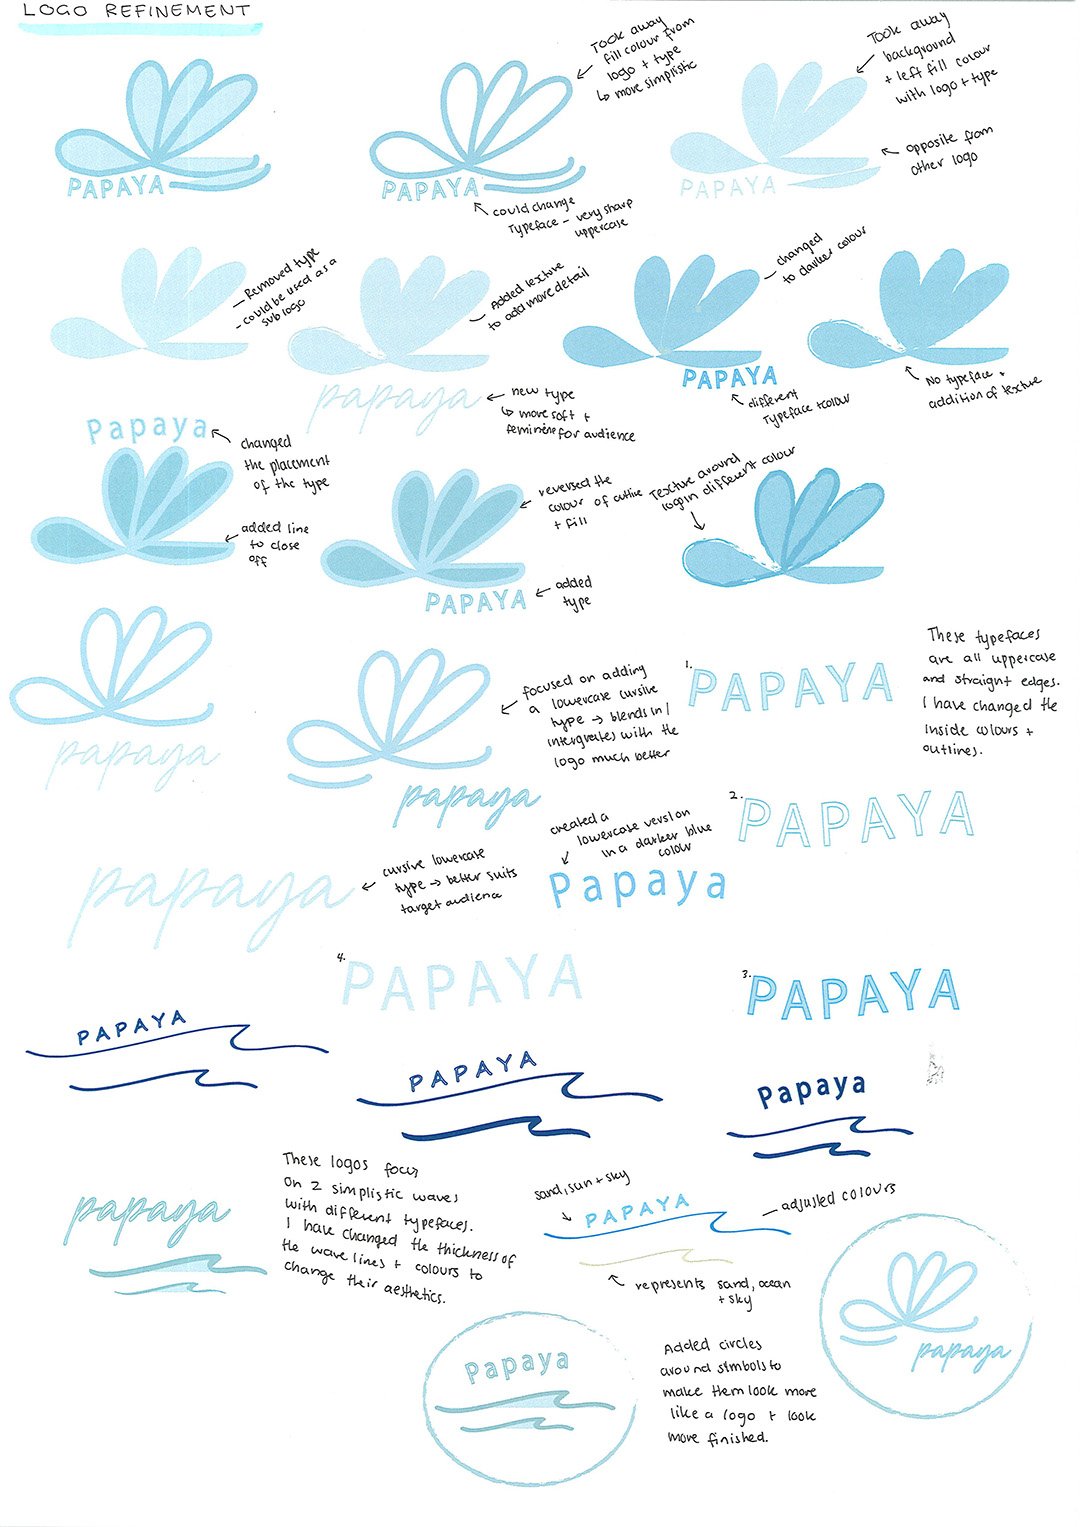 LOGO REFINEMENT
PAPAYA
PAPAYA
Took away
fill colour from
logo + type
↳ more simplistic
could change
Typeface - very sharp
uppercase
PAPAYA
Took away
background
+ left fill colour
with logo + type
opposite from
other logo
- Removed type
- could be used as a
sub logo
papaya
Added texture
to add more detail
new type
↳ more soft +
feminine for audience
PAPAYA
changed
to darker colour
different
Typeface + colour
No typeface +
addition of texture
Papaya
changed
the placement
of the type
added line
to close
off
PAPAYA
reversed the
colour of outline
+ fill
added
type
Texture around
logo in different colour
papaya
papaya
focused on adding
a lowercase cursive
type → blends in /
intergrates with the
logo much better
1. PAPAYA
These typefaces
are all uppercase
and straight edges.
I have changed the
inside colours +
outlines.
2. PAPAYA
papaya
cursive lowercase
type → better suits
target audience
created a
lowercase version
in a darker blue
colour
Papaya
4. PAPAYA
3. PAPAYA
PAPAYA
PAPAYA
Papaya
papaya
These logos focus
on 2 simplistic waves
with different typefaces.
I have changed the thickness of
the wave lines + colours to
change their aesthetics.
sand, sun + sky
PAPAYA
adjusted colours
represents sand, ocean
+ sky
Papaya
Added circles
around simbols to
make them look more
like a logo + look
more finished.
papaya